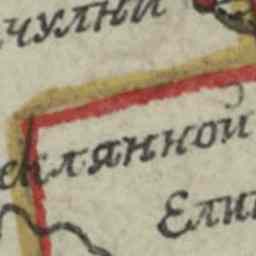 чулни
еклянной
Ели